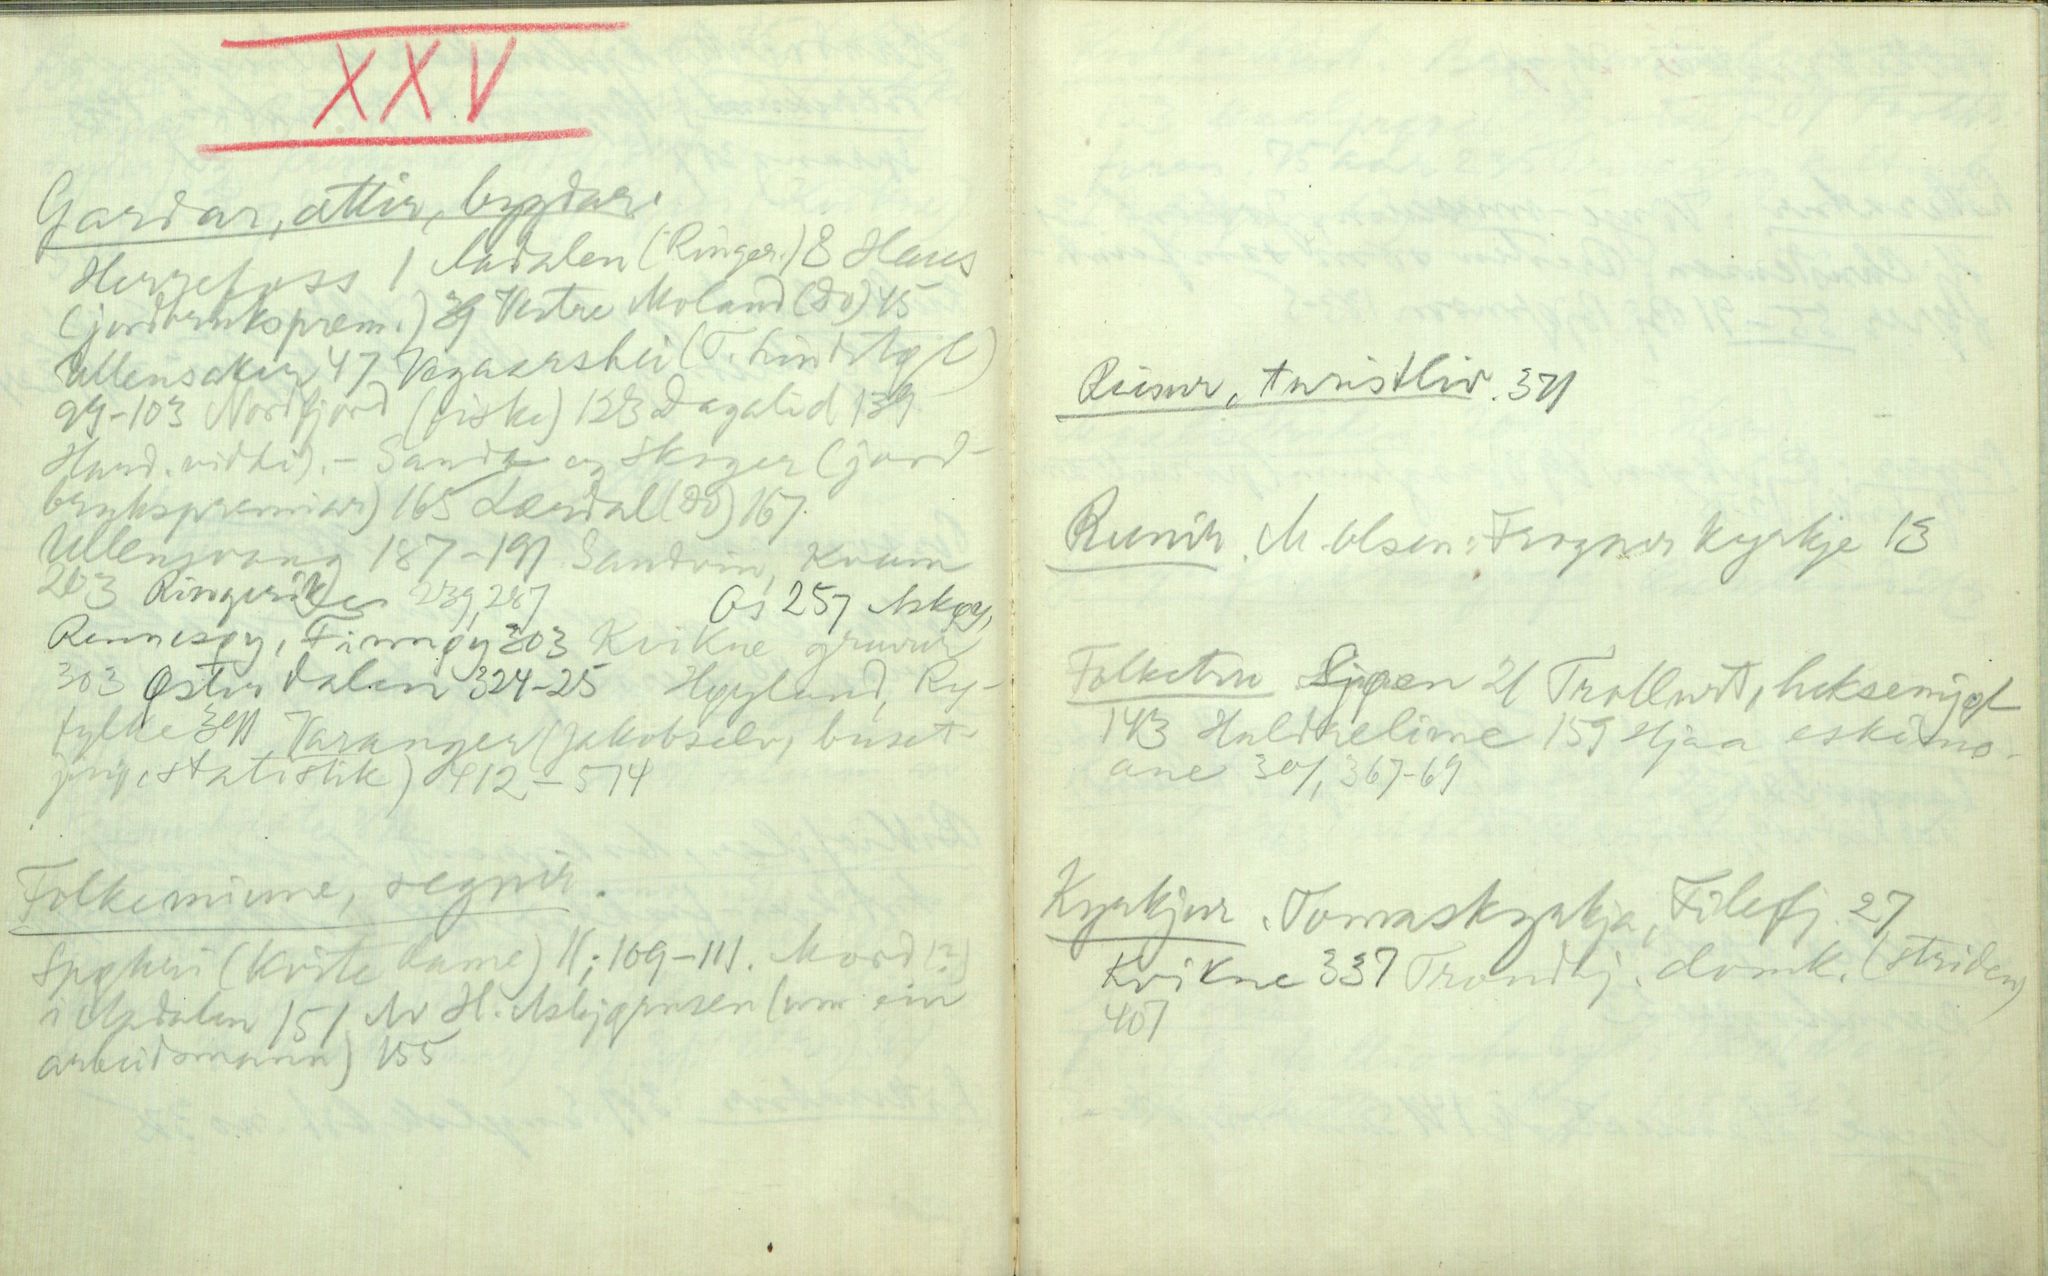 XXV
Gardar, ættir, bygdar.
Herrefoss 1 Aadalen (Ringer.) 8 Haus
(jordbruksprem.) 39 Vestre Moland (do) 45
Ullensaker 47 Vegaarshei (T. Lindstøl)
99-103 Nordfjord (fiske) 123 Dagalid 139
Hard.vidd i). - Sande og Skoger (jord-
brukspremiar) 165 Lærdal (do) 167.
Ullensvang 187-191 Sandvin, Kvam
203 Ringerike 239, 287 Os 257 Askøy,
Rennesøy, Finnøy 303 Kvikne gruver
303 Østerdalen 324-25 Høyland, Ry-
fylke 391 Varanger (Jakobselv, buset-
jing, statistik) 412-574
Folkeminne, segner.
Spøkeri (Kvite dame) 11; 109-111. Mord (?)
i Aadalen 151 Av H. Asbjørnsen (um ein
arbeidsmann) 155
Reiser, turistliv. 371
Runer. M. Olsen: Frogner kyrkje 13
Folketru Sjøen 21 Trollurt, heksemjøl
143 Huldrelime 159 Hjaa eskimo-
ane 301, 367-69
Kyrkjer. Tomaskyrkja, Filefj. 27
Kvikne 337 Trondhj. domk. (striden)
407